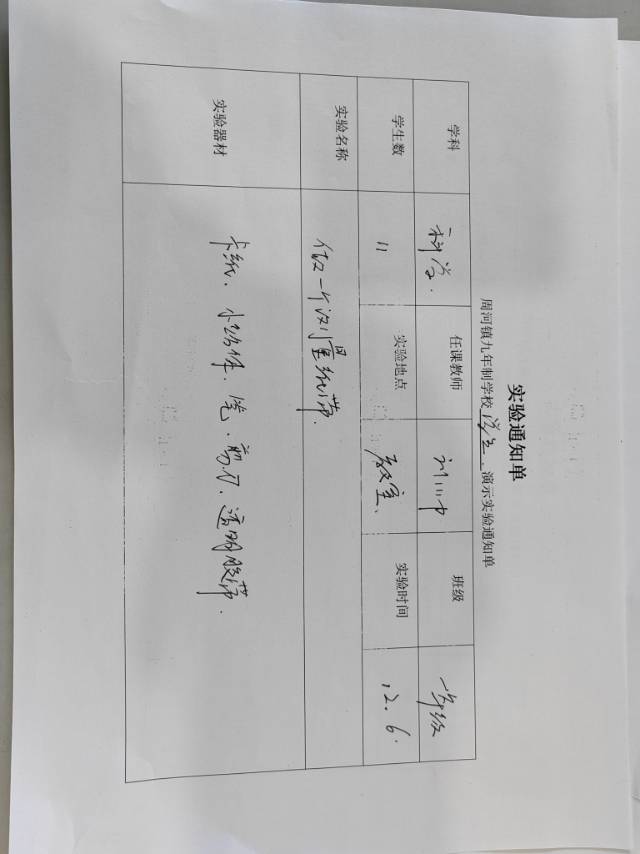 实验通知单
周河镇九年制学校 学生 演示实验通知单
学科 科学. 任课教师 班级 一年级
学生数 11 实验地点 教室、 实验时间 12.6.
实验名称 做一个测量纸带.
实验器材 卡纸、小 、笔、剪刀、透明胶带.